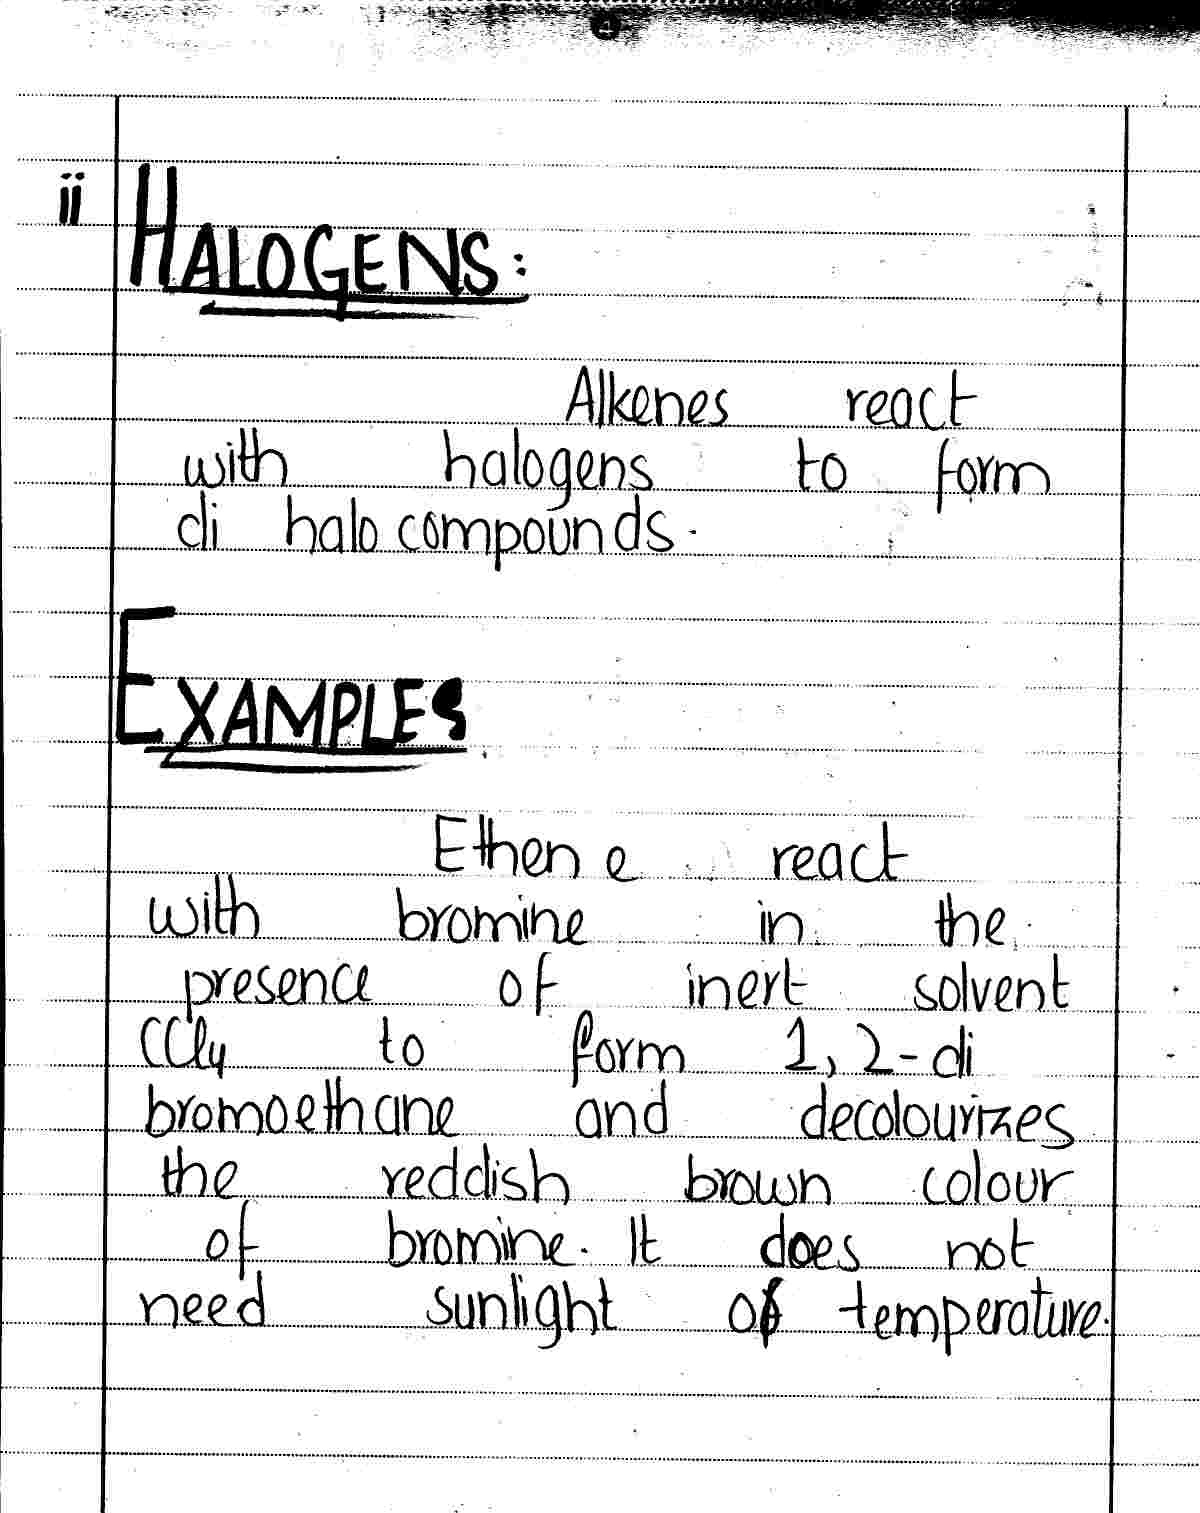 ii HALOGENS:
Alkenes react
with halogens to form
di halo compounds.
EXAMPLES
Ethene react
with bromine in the
presence of inert solvent
CCl4 to form 1, 2-di
bromoethane and decolourizes
the reddish brown colour
of bromine. It does not
need sunlight of temperature.